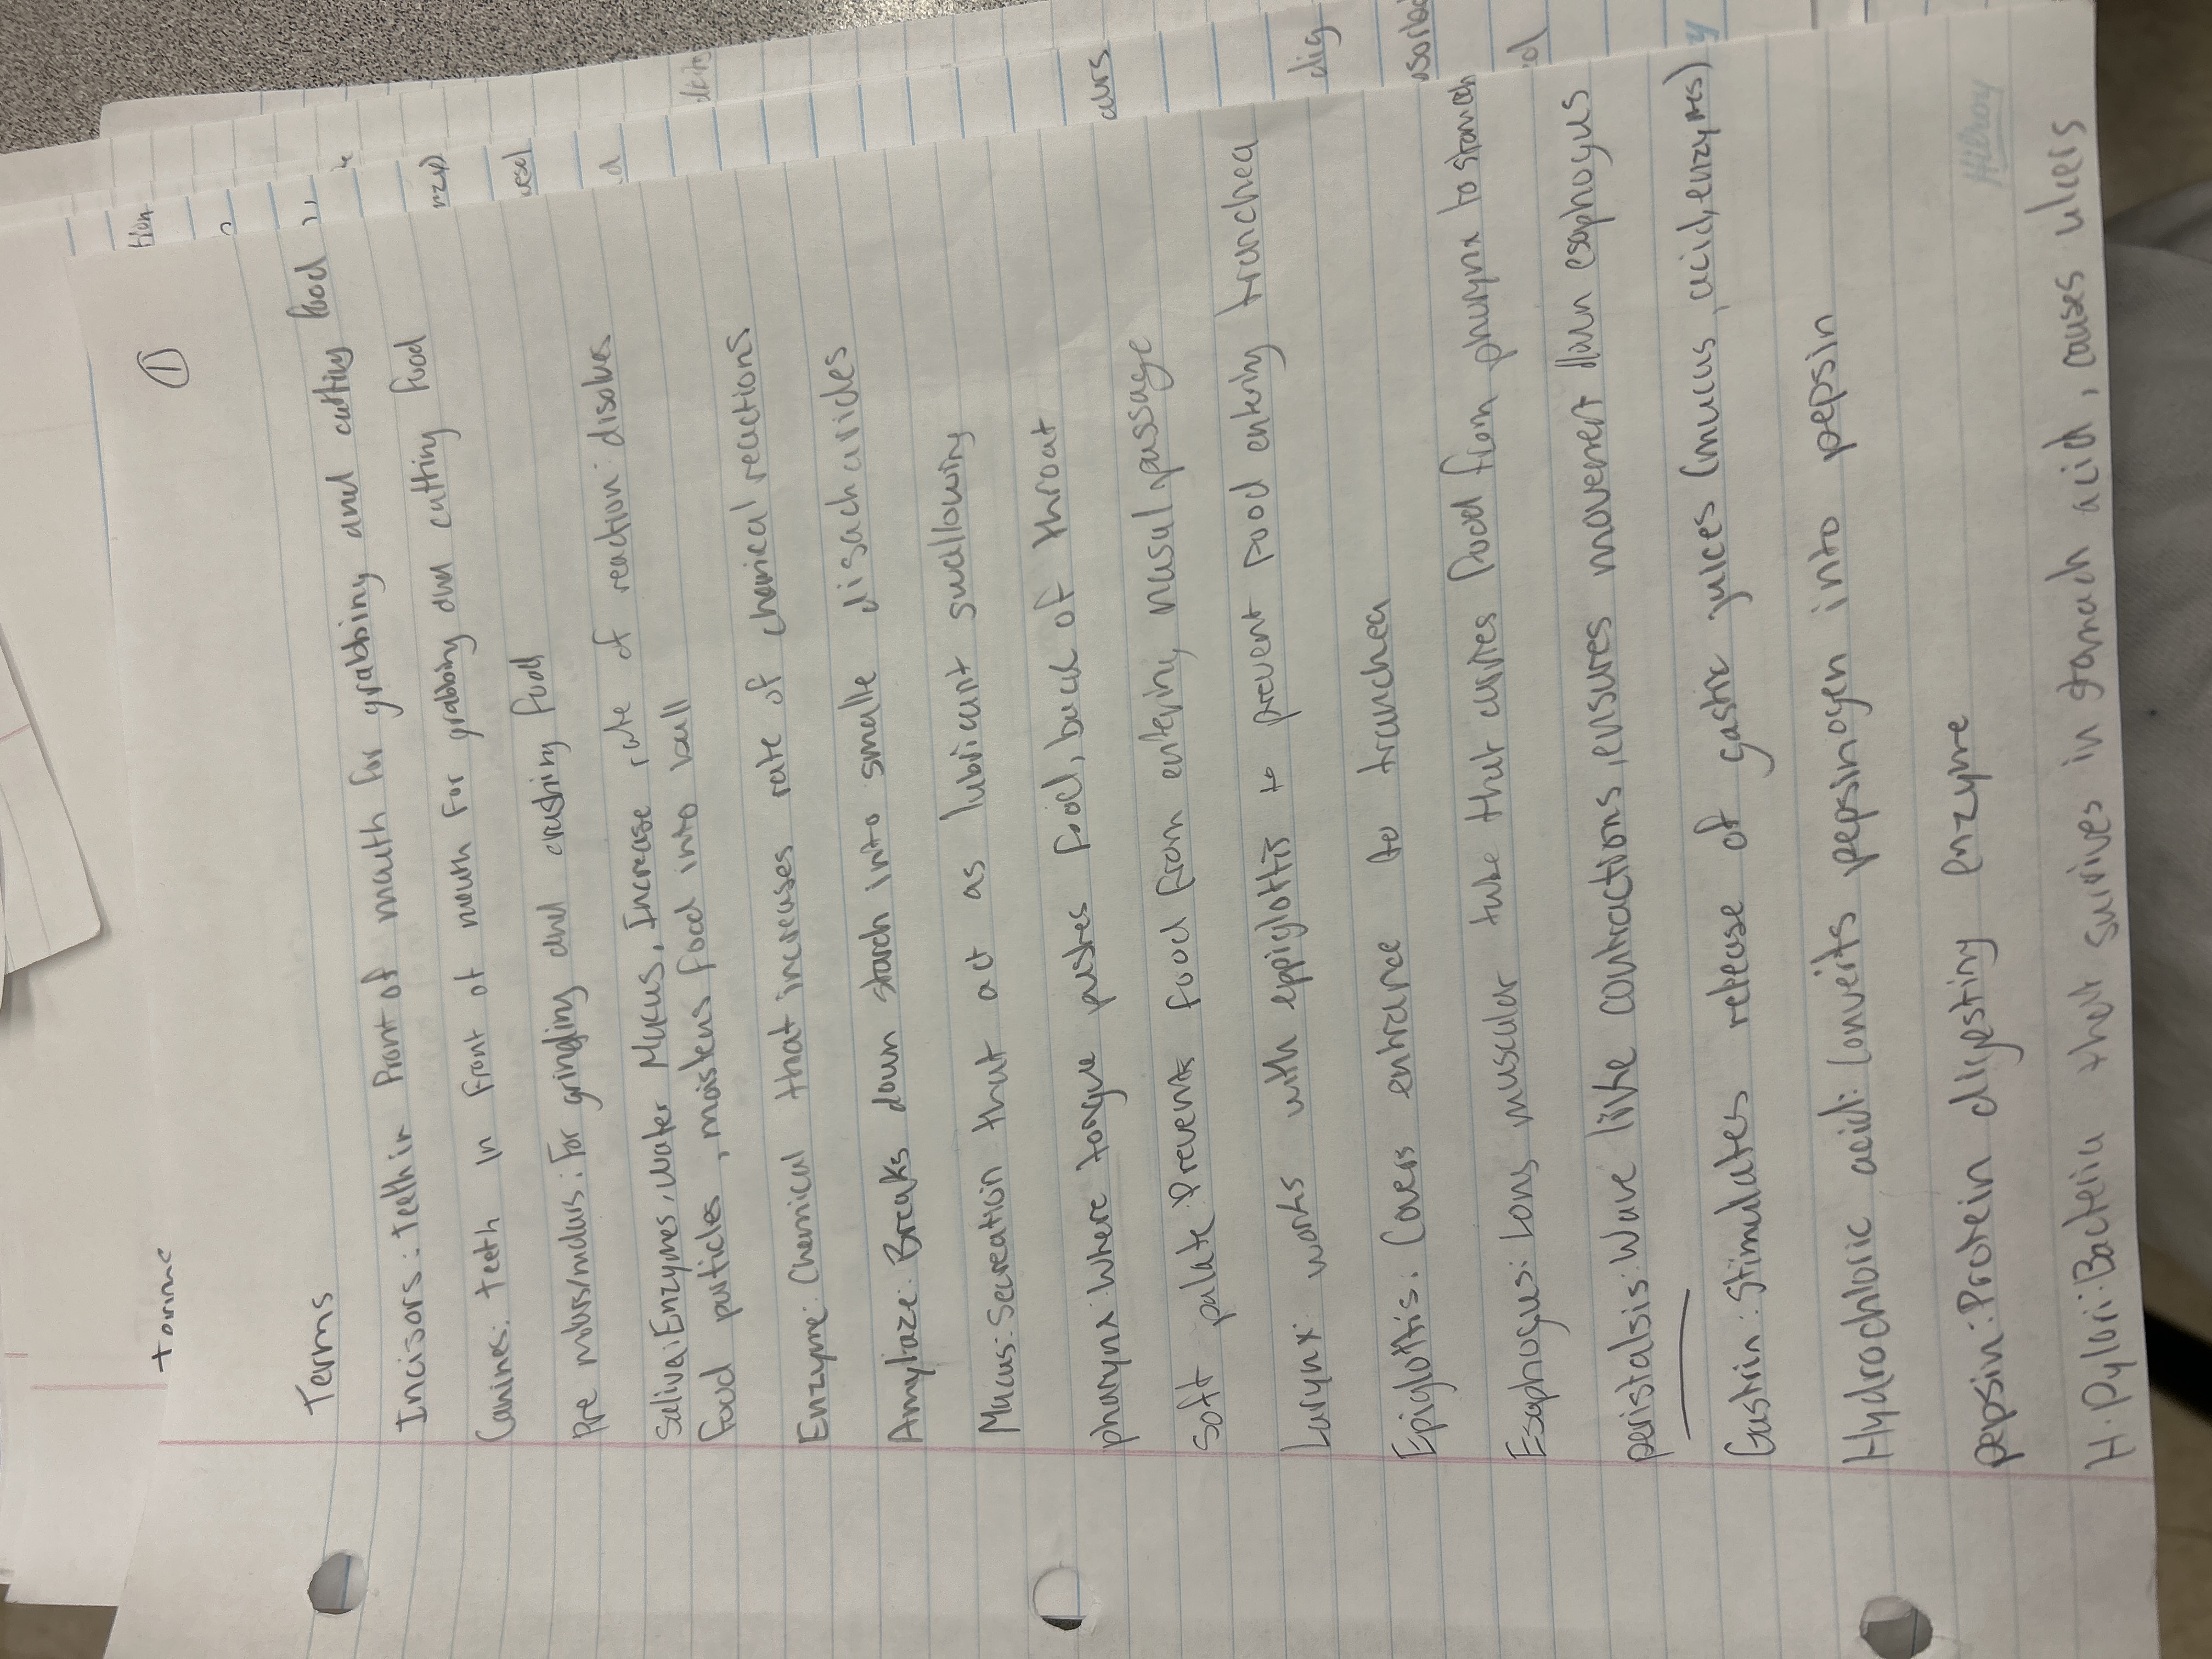 ①
Terms
Incisors: teeth in front of mouth for grabbing and cutting food
Canines: teeth in front of mouth for grabbing and cutting food
Pre molars/molars: For grinding and crushing food
Saliva: Enzymes, water Mucus, Increase rate of reaction: disolves
food particles, moistens food into ball
Enzyme: Chemical that increases rate of chemical reactions
Amylaze: Breaks down starch into smalle disacharides
Mucus: Secreation that act as lubricant swallowing
pharynx: Where tongue pushes food, back of throat
Soft palate: Prevents food from entering nasal passage
Larynx: works with eppiglottis to prevent food entering tranchea
Epiglottis: Covers entrance to tranchea
Esaphogus: Long muscular tube that carries food from pharynx to stomach
peristalsis: Wave like contractions, ensures movement down esaphogus
Gastrin: Stimulates release of gastric juices (mucus, acid, enzymes)
Hydrochloric acid: Converts pepsinogen into pepsin
pepsin: Protein digesting enzyme
H. Pylori: Bacteria that survives in stomach acid, causes ulcers
Hilroy